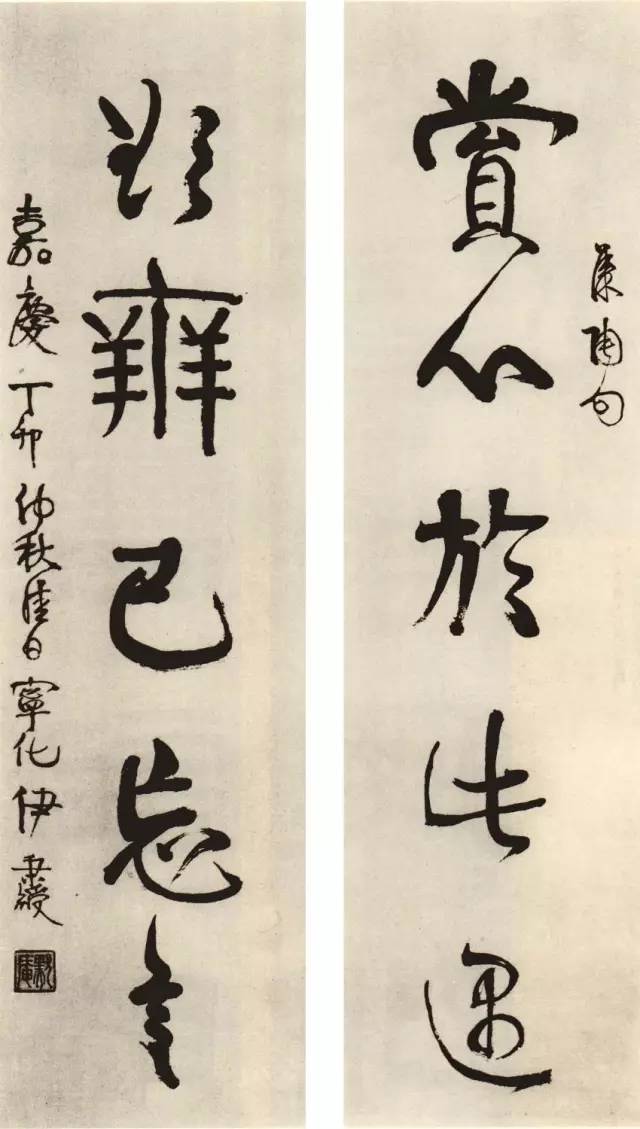 陶句
賞心於此遇
欲辨已忘言
嘉慶丁卯仲秋佳日寧化伊秉綬